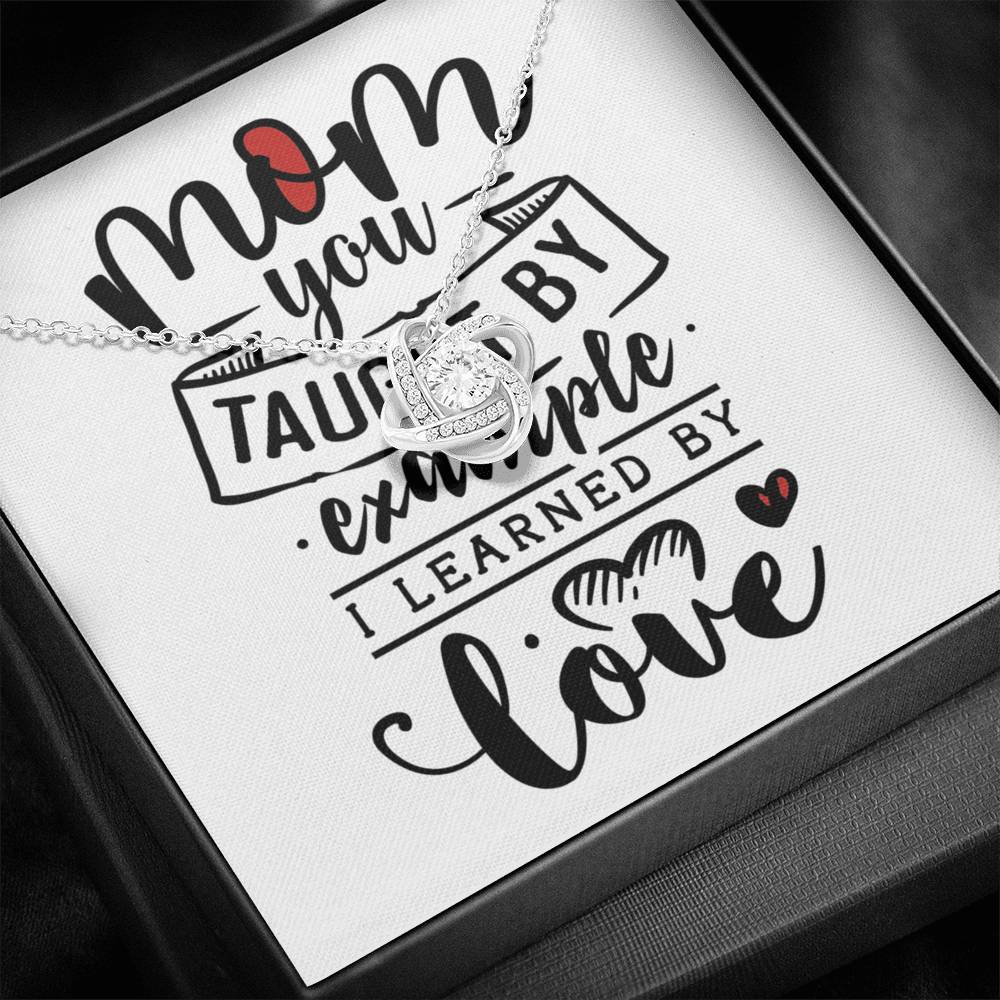 mom
you
TAUGHT BY
example
I LEARNED BY
love